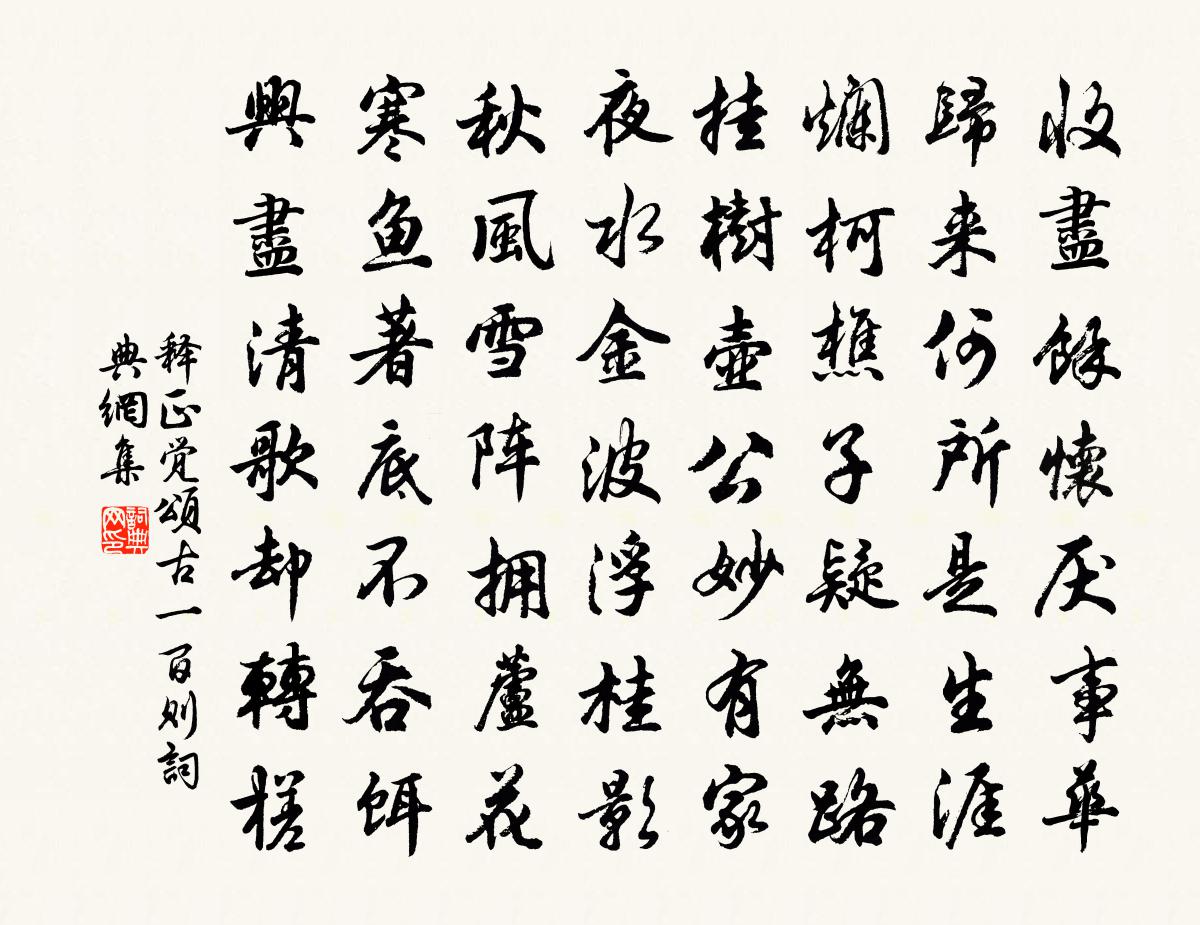 收盡餘懷厌事華
歸来何所是生涯
爛柯樵子疑無路
挂樹壺公妙有家
夜水金波浮桂影
秋風雪阵拥蘆花
寒鱼著底不吞餌
興盡清歌却轉槎
释正觉頌古一百则詞
典網集
詞典
网印